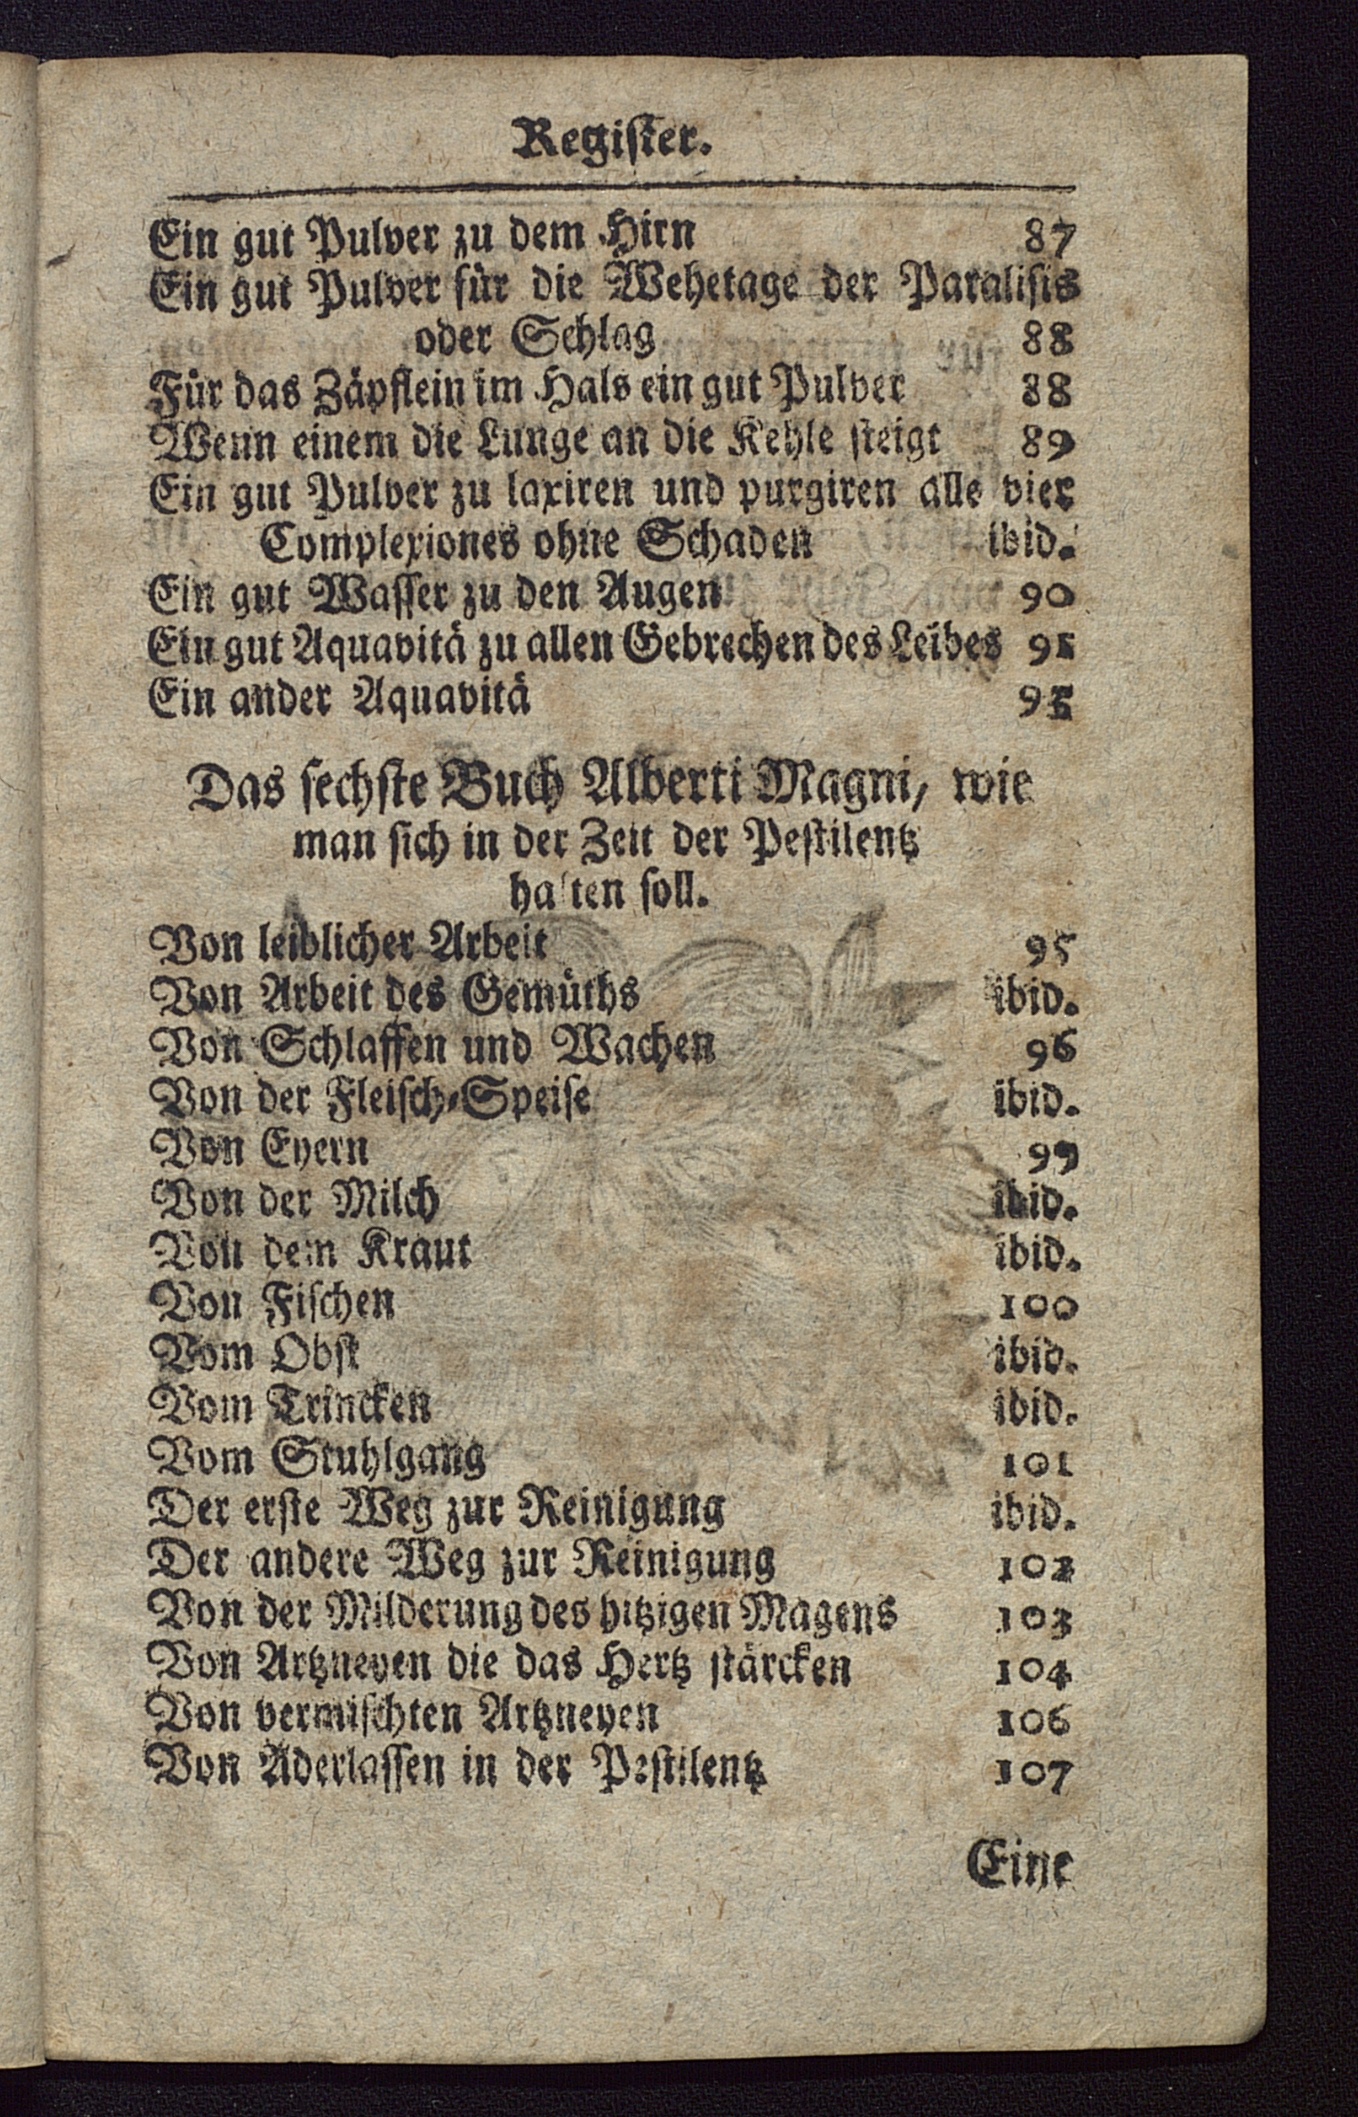 Register.
Ein gut Pulver zu dem Hirn 87
Ein gut Pulver für die Wehetage der Paralisis
oder Schlag 88
Für das Zäpflein im Hals ein gut Pulver 88
Wenn einem die Lunge an die Kehle steigt 89
Ein gut Pulver zu laxiren und purgiren alle vier
Complexiones ohne Schaden ibid.
Ein gut Wasser zu den Augen 90
Ein gut Aquavitä zu allen Gebrechen des Leibes 91
Ein ander Aquavitä
Das sechste Buch Alberti Magni, wie
man sich in der Zeit der Pestilentz
halten soll.
Von leiblicher Arbeit 95
Von Arbeit des Gemüths ibid.
Von Schlaffen und Wachen 96
Von der Fleisch-Speise ibid.
Von Eyern 99
Von der Milch ibid.
Von dem Kraut ibid.
Von Fischen 100
Vom Obst ibid.
Vom Trincken ibid.
Vom Stuhlgang 101
Der erste Weg zur Reinigung ibid.
Der andere Weg zur Reinigung 102
Von der Milderung des hitzigen Magens 103
Von Artzneyen die das Hertz stärcken 104
Von vermischten Artzneyen 106
Von Aderlassen in der Pestilentz 107
Eine